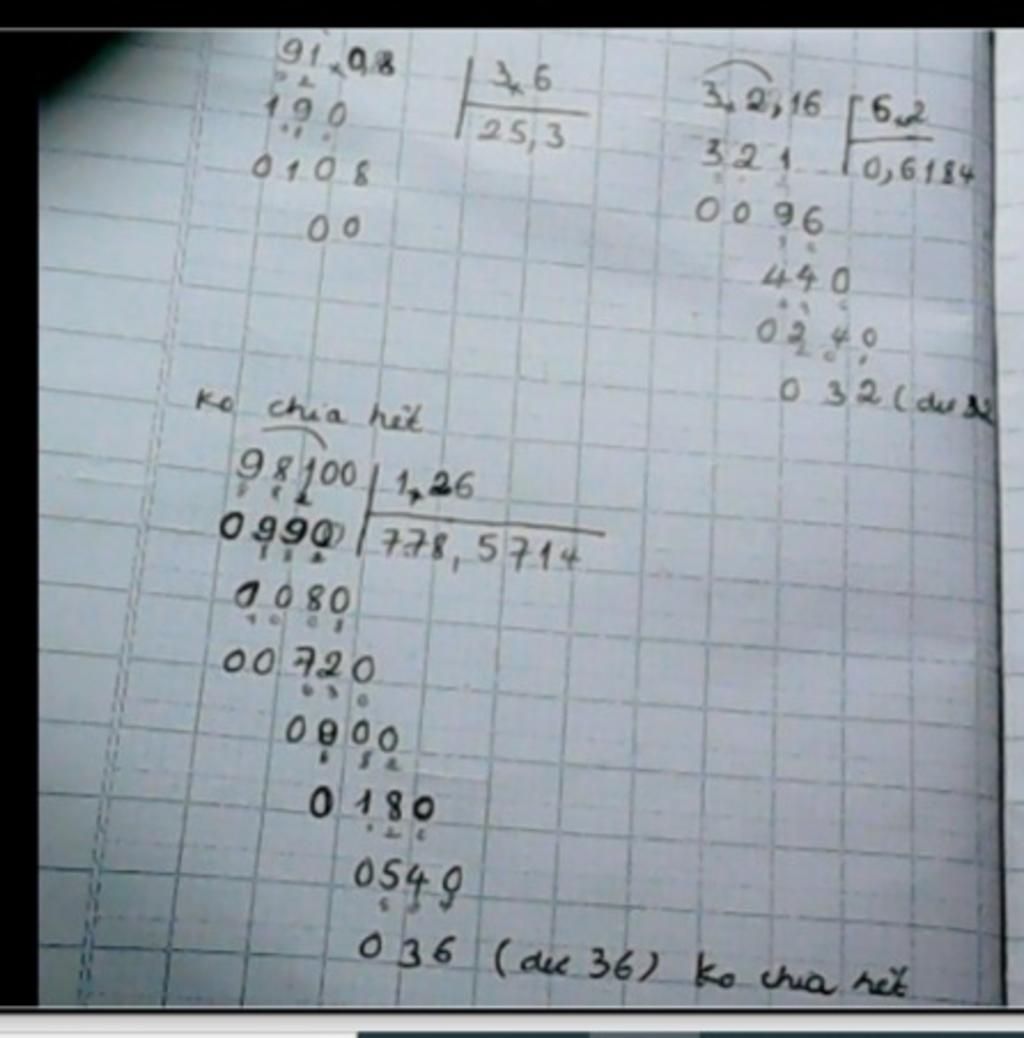 91,08 3,6
190 25,3
0108
00
3,2,16 5,2
321 0,6184
0096
440
0240
032 (dư 32
Ko chia hết
98100 1,26
0990 778,5714
1080
00720
0900
0180
0540
036 (dư 36) Ko chia hết